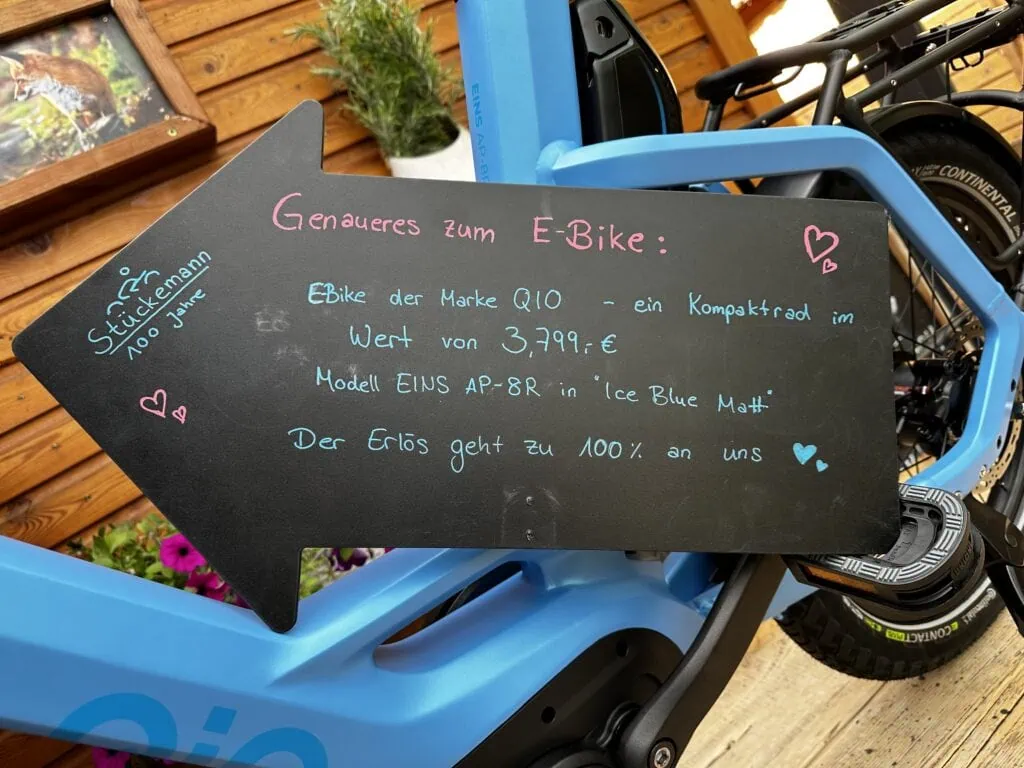 EINS AP-8R
CONTINENTAL
Genaueres zum E-Bike:
Stückemann
100 Jahre
EBike der Marke QIO - ein Kompaktrad im
Wert von 3,799,- €
Modell EINS AP-8R in "Ice Blue Matt"
Der Erlös geht zu 100% an uns
CONTACT
Qio